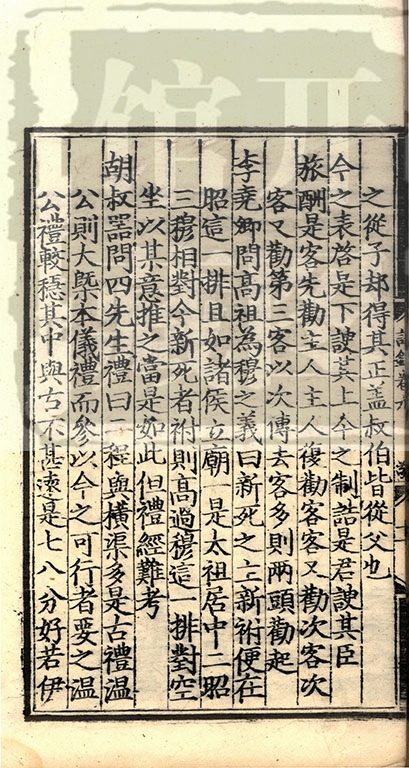 之從子却得其正盖叔伯皆從父也
今之表啓是下諛其上今之制誥是君諛其臣
旅酬是客先勸主人主人復勸客客又勸次客次
客又勸第三客以次傳去客多則兩頭勸起
李堯卿問高祖為穆之義曰新死之主新祔便在
昭這一排且如諸侯五廟一是太祖居中二昭
三穆相對今新死者祔則高過穆這一排對空
坐以其意推之當是如此但禮經難考
胡叔器問四先生禮曰二程與橫渠多是古禮温
公則大槩本儀禮而參以今之可行者要之温
公禮較穩其中與古不甚遠是七八分好若伊